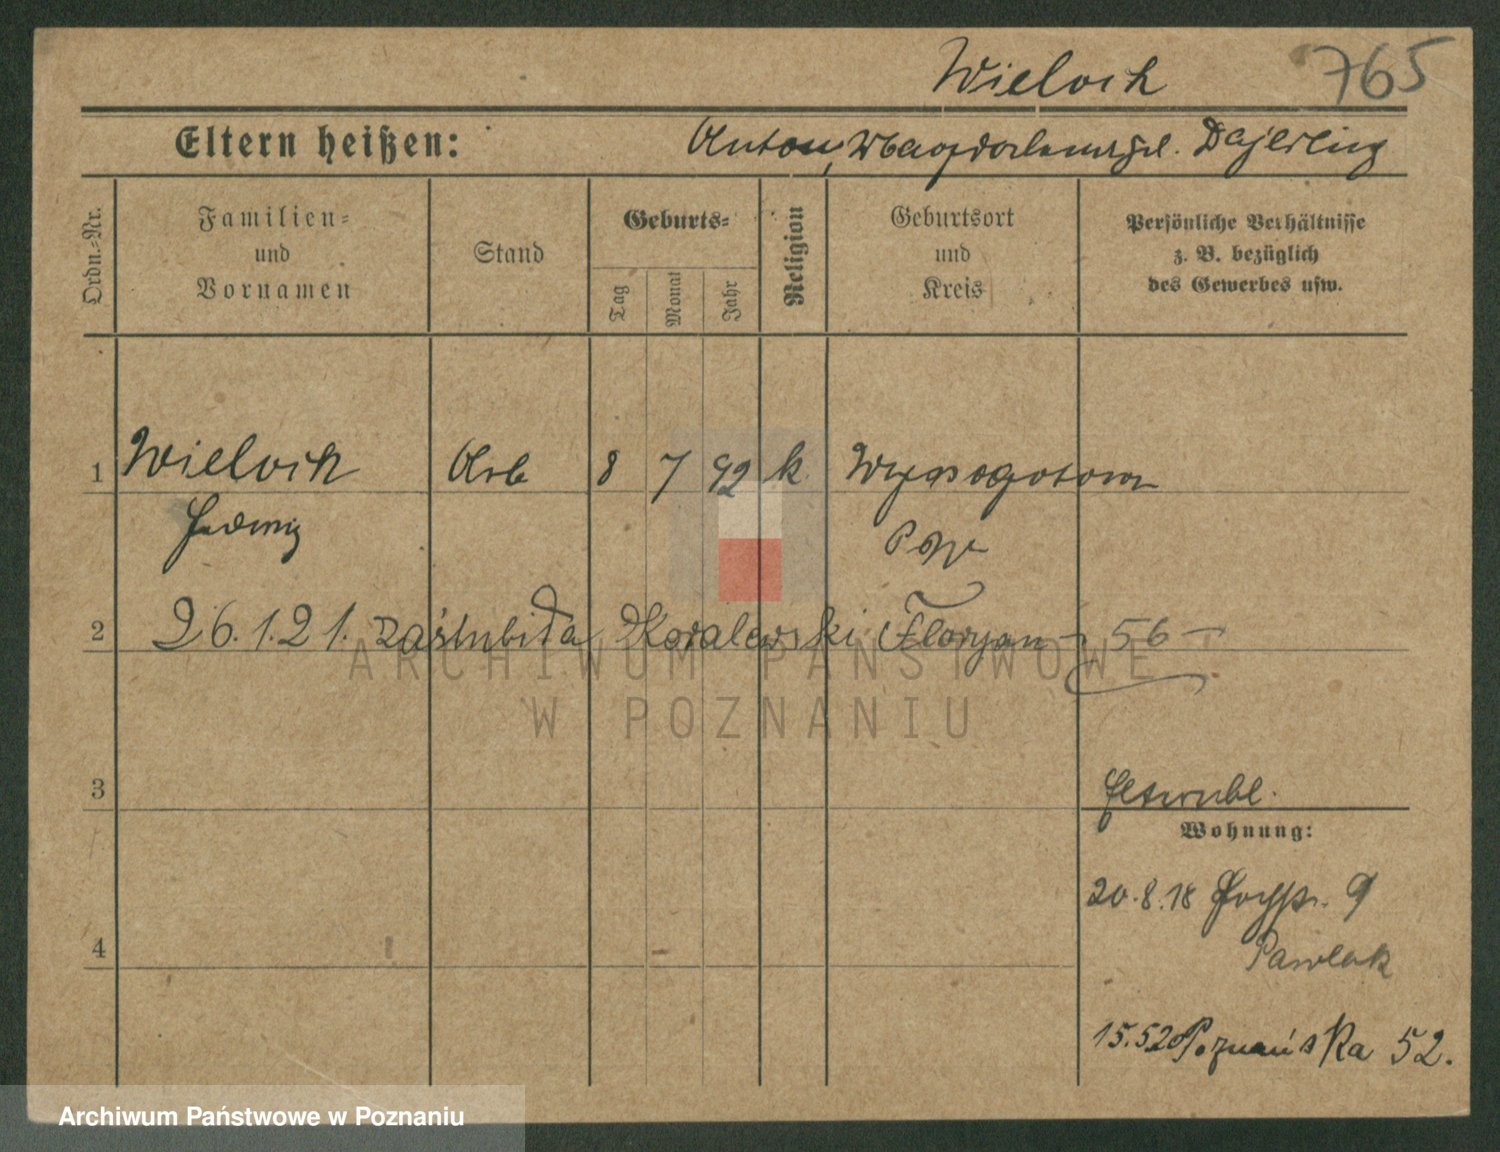 Wieloch 765
Eltern heißen: Anton, Magdalena gel. Dajerling
Ordn.-Nr.
Familien-
und
Vornamen
Stand
Geburts-
Tag
Monat
Jahr
Religion
Geburtsort
und
Kreis
Persönliche Verhältnisse
z. B. bezüglich
des Gewerbes usw.
1 Wieloch Arb 8 7 92 k. Wysogotowo
Hedwig
2 26.1.21. zaślubiła Koralewski Floryan - 56 -
3
Wohnung:
20.8.18 9
4
Pawlak
15.5.20 Poznańska 52.
ARCHIWUM PAŃSTWOWE
W POZNANIU
Archiwum Państwowe w Poznaniu